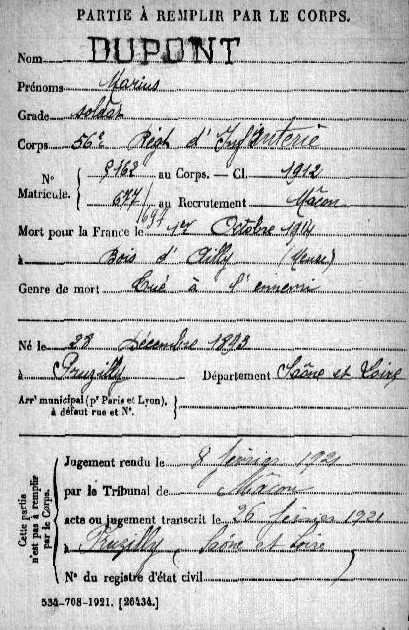 PARTIE À REMPLIR PAR LE CORPS.
Nom DUPONT
Prénoms Marius
Grade soldat
Corps 56e Régt d'Infanterie
N° Matricule. { 8162 au Corps. — Cl. 1912
677/697 au Recrutement Mâcon
Mort pour la France le 1er Octobre 1914
à Bois d'Ailly (Meuse)
Genre de mort Tué à l'ennemi
Né le 28 Décembre 1893
à Pruzilly Département Saône et Loire
Arrt municipal (pr Paris et Lyon), à défaut rue et N°.
Cette partie n'est pas à remplir par le Corps.
Jugement rendu le 8 février 1921
par le Tribunal de Mâcon
acte ou jugement transcrit le 26 février 1921
à Pruzilly (Saône et Loire)
N° du registre d'état civil
534-708-1921. [26434.]